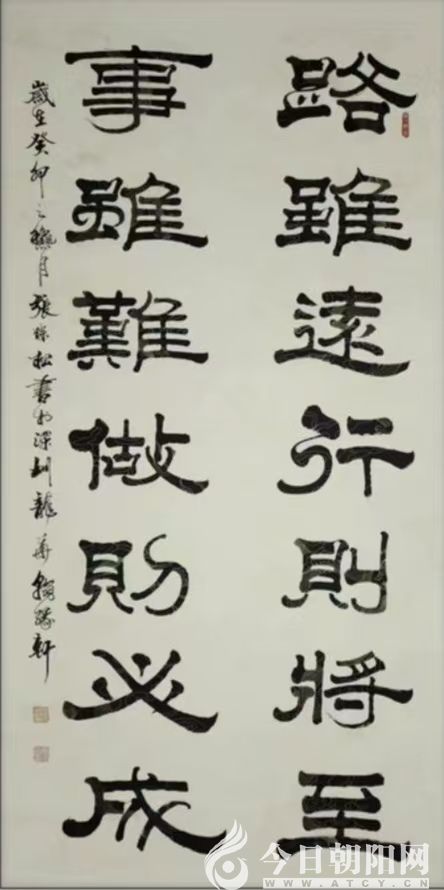 路雖遠行則將至
事雖難做則必成
歲在癸卯之臘月張保松書於深圳龍華翰緣軒
今日朝阳网
WWW.ATCY.CN